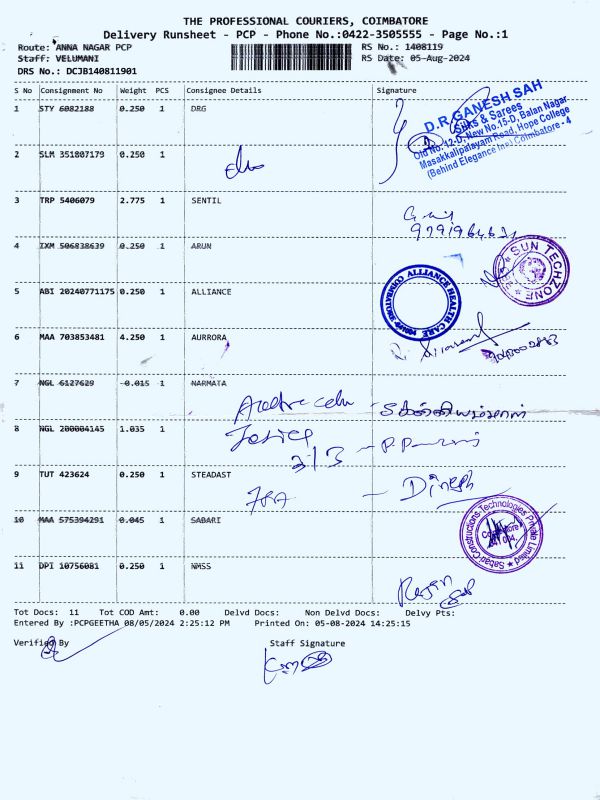 THE PROFESSIONAL COURIERS, COIMBATORE
Delivery Runsheet - PCP - Phone No.:0422-3505555 - Page No.:1
Route: ANNA NAGAR PCP RS No.: 1408119
Staff: VELUMANI RS Date: 05-Aug-2024
DRS No.: DCJB140811901
S No Consignment No Weight PCS Consignee Details Signature
1 STY 6082188 0.250 1 DRG
D.R.GANESH SAH
Silks & Sarees
Old No.12-D, New No.15-D, Balan Nagar
Masakkalipalayam Road, Hope College
(Behind Elegance Inn) Coimbatore - 4
2 SLM 351807179 0.250 1
3 TRP 5406079 2.775 1 SENTIL
4 IXM 506838639 0.250 1 ARUN
SUN TECHZONE
5 ABI 20240771175 0.250 1 ALLIANCE
ALLIANCE HEALTH CARE
COIMBATORE
6 MAA 703853481 4.250 1 AURRORA
7 NGL 6127629 0.015 1 NARMATA
8 NGL 200004145 1.035 1
9 TUT 423624 0.250 1 STEADAST
Dinesh
10 MAA 575394291 0.045 1 SABARI
Sabari Constructions Technologies Private Limited
11 DPI 10756081 0.250 1 NMSS
Tot Docs: 11 Tot COD Amt: 0.00 Delvd Docs: Non Delvd Docs: Delvy Pts:
Entered By :PCPGEETHA 08/05/2024 2:25:12 PM Printed On: 05-08-2024 14:25:15
Verified By Staff Signature